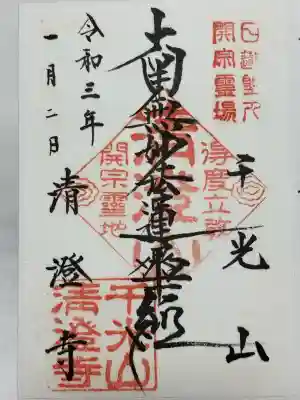 日蓮聖人
開宗靈場
千光山
得度立教
南無妙法蓮華経
開宗靈地
清澄寺
千光山
清澄寺
令和三年
一月二日